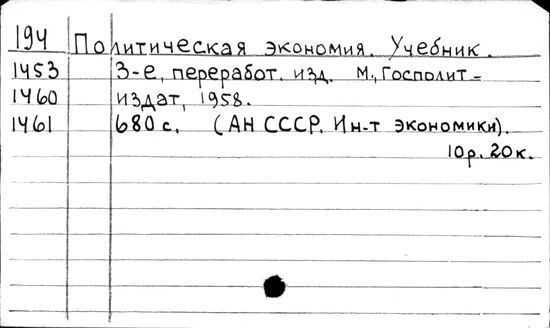 194 Политическая экономия. Учебник.
1453 3-е, переработ. изд. М., Госполит-
1460 издат, 1958.
1461 680 с. (АН СССР. Ин-т экономики).
10 р. 20 к.